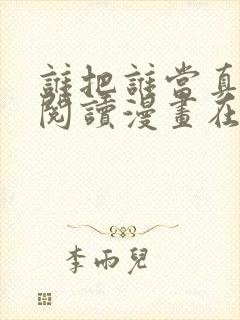 誰把誰當真
閱讀漫畫在
李雨兒